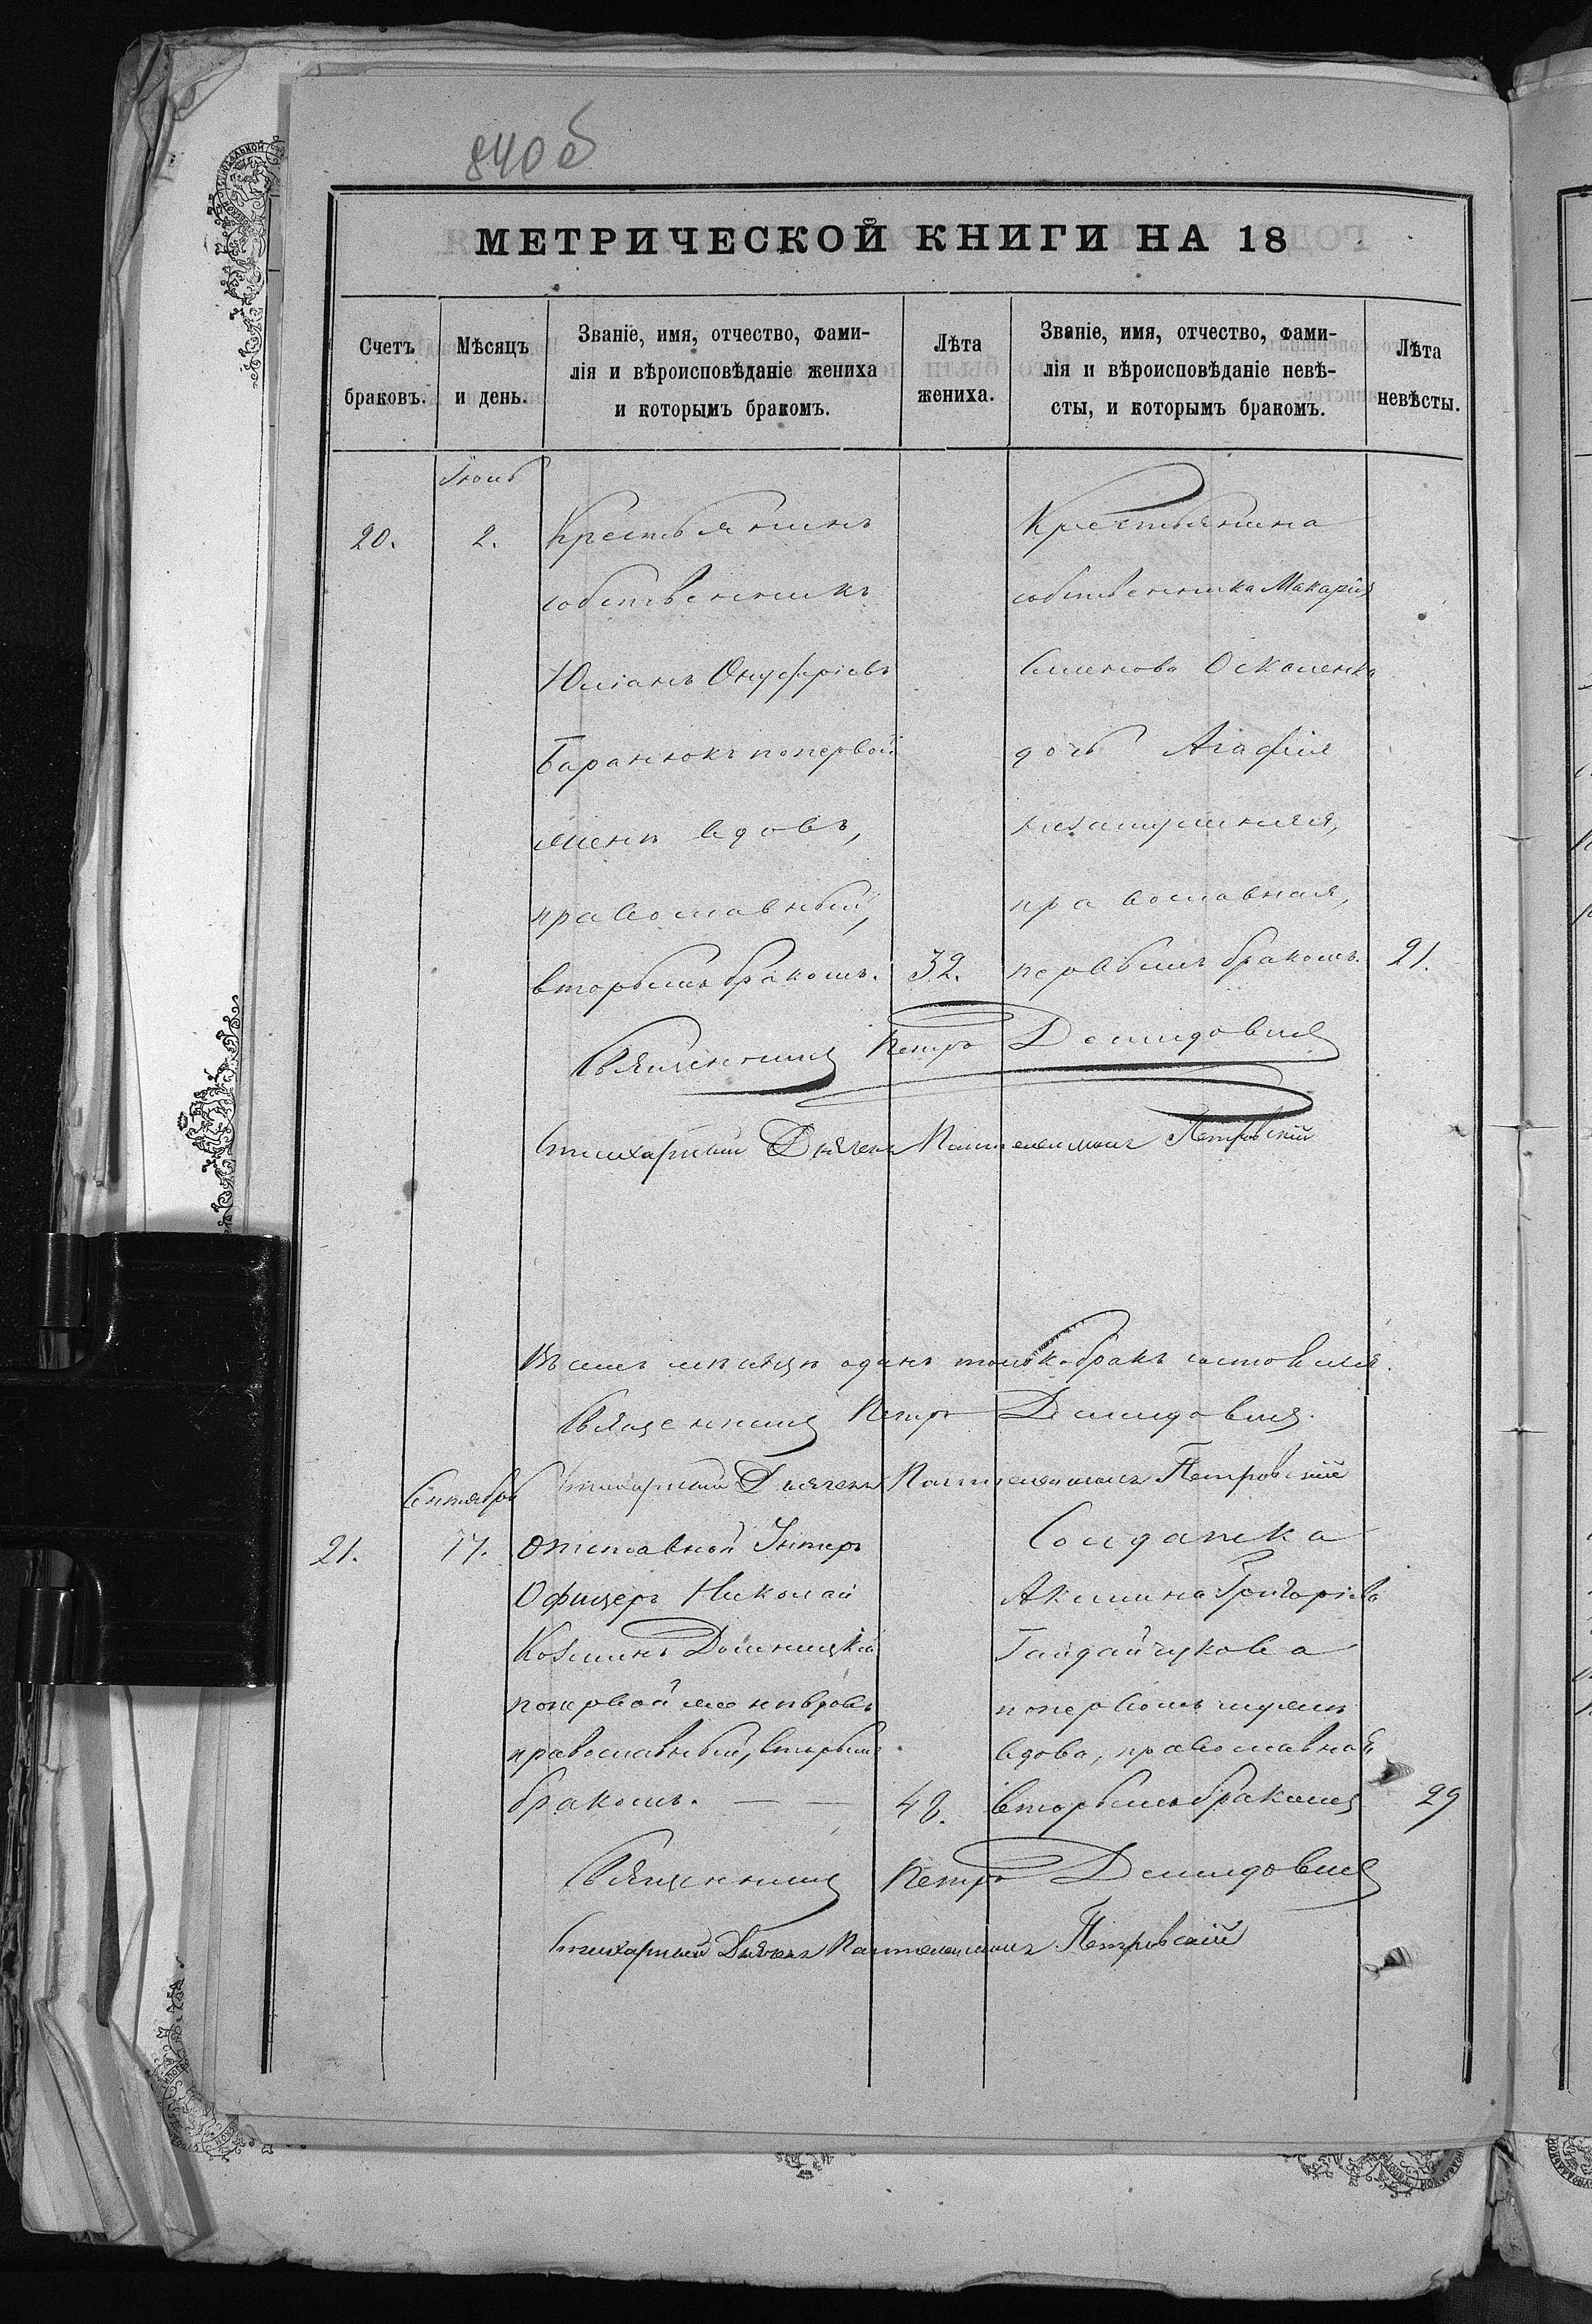 840б
МЕТРИЧЕСКОЙ КНИГИ НА 18
Счетъ браковъ.
Мѣсяцъ и день.
Званіе, имя, отчество, фами-
лія и вѣроисповѣданіе жениха
и которымъ бракомъ.
Лѣта жениха.
Званіе, имя, отчество, фами-
лія и вѣроисповѣданіе невѣ-
сты, и которымъ бракомъ.
Лѣта невѣсты.
20.
2.
Крестьянинъ
собственникъ
Юліанъ Онуфріевъ
Баранюкъ по первой
женѣ вдовъ,
православный,
вторымъ бракомъ.
32.
Крестьянина
собственника Макарія
Семенова
дочь Агафія
православная,
первымъ бракомъ.
21.
Священникъ Петръ Демидовичъ
Стихарный Дьячекъ Пантелеимонъ Петровскій
Въ семъ мѣсяцѣ одинъ только бракъ состоялся.
Священникъ Петръ Демидовичъ.
Стихарный Дьячекъ Пантелеимонъ Петровскій
Сентября
21.
17.
Отставной Унтеръ
Офицеръ Николай
Козминъ
по первой женѣ вдовъ
православный, вторымъ
бракомъ. — —
48.
Солдатка
Акилина Григоріева
Гайдайчукова
по первомъ мужѣ
вдова, православная,
вторымъ бракомъ
29
Священникъ Петръ Демидовичъ
Стихарный Дьячекъ Пантелеимонъ Петровскій